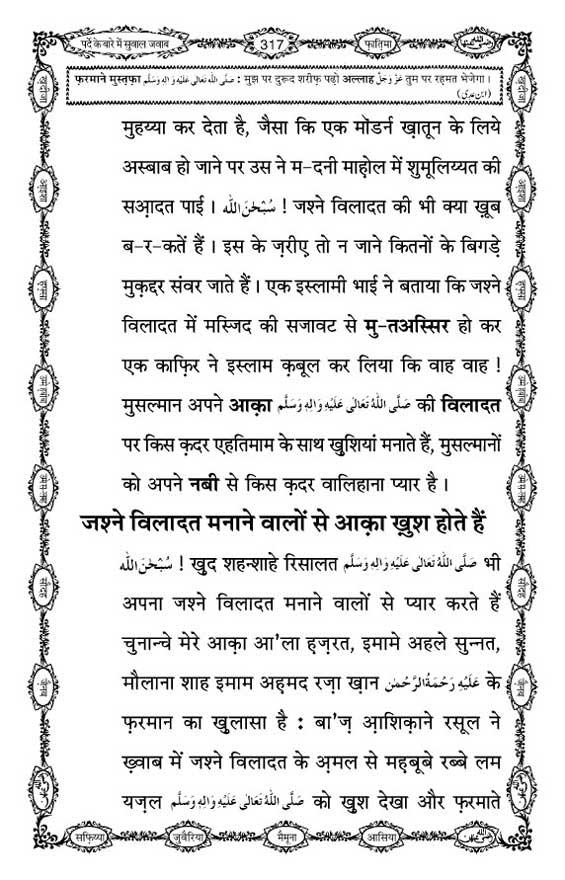 पर्दे के बारे में सुवाल जवाब 317 फ़ातिमा
फ़रमाने मुस्तफ़ा صَلَّى اللهُ تَعَالٰى عَلَيْهِ وَاٰلِهٖ وَسَلَّم : मुझ पर दुरूद शरीफ़ पढ़ो अल्लाह عَزَّ وَجَلَّ तुम पर रहमत भेजेगा।
(ابن عدی)
मुहय्या कर देता है, जैसा कि एक मॉडर्न ख़ातून के लिये
अस्बाब हो जाने पर उस ने म-दनी माह़ोल में शुमूलिय्यत की
सआ़दत पाई। سُبْحٰنَ اللّٰه ! जश्ने विलादत की भी क्या ख़ूब
ब-र-कतें हैं। इस के ज़रीए़ तो न जाने कितनों के बिगड़े
मुक़द्दर संवर जाते हैं। एक इस्लामी भाई ने बताया कि जश्ने
विलादत में मस्जिद की सजावट से मु-तअस्सिर हो कर
एक काफ़िर ने इस्लाम क़बूल कर लिया कि वाह वाह !
मुसल्मान अपने आक़ा صَلَّى اللهُ تَعَالٰى عَلَيْهِ وَاٰلِهٖ وَسَلَّم की विलादत
पर किस क़दर एहतिमाम के साथ खुशियां मनाते हैं, मुसल्मानों
को अपने नबी से किस क़दर वालिहाना प्यार है।
जश्ने विलादत मनाने वालों से आक़ा ख़ुश होते हैं
سُبْحٰنَ اللّٰه ! खुद शहन्शाहे रिसालत صَلَّى اللهُ تَعَالٰى عَلَيْهِ وَاٰلِهٖ وَسَلَّم भी
अपना जश्ने विलादत मनाने वालों से प्यार करते हैं
चुनान्चे मेरे आक़ा आ'ला ह़ज़रत, इमामे अहले सुन्नत,
मौलाना शाह इमाम अह़मद रज़ा ख़ान عَلَيْهِ رَحْمَةُ الرَّحْمٰن के
फ़रमान का खुलासा है : बा'ज़ आ़शिक़ाने रसूल ने
ख़्वाब में जश्ने विलादत के अ़मल से मह़बूबे रब्बे लम
यज़ल صَلَّى اللهُ تَعَالٰى عَلَيْهِ وَاٰلِهٖ وَسَلَّم को खुश देखा और फ़रमाते
सफ़िय्या जुवैरिया मैमूना आसिया